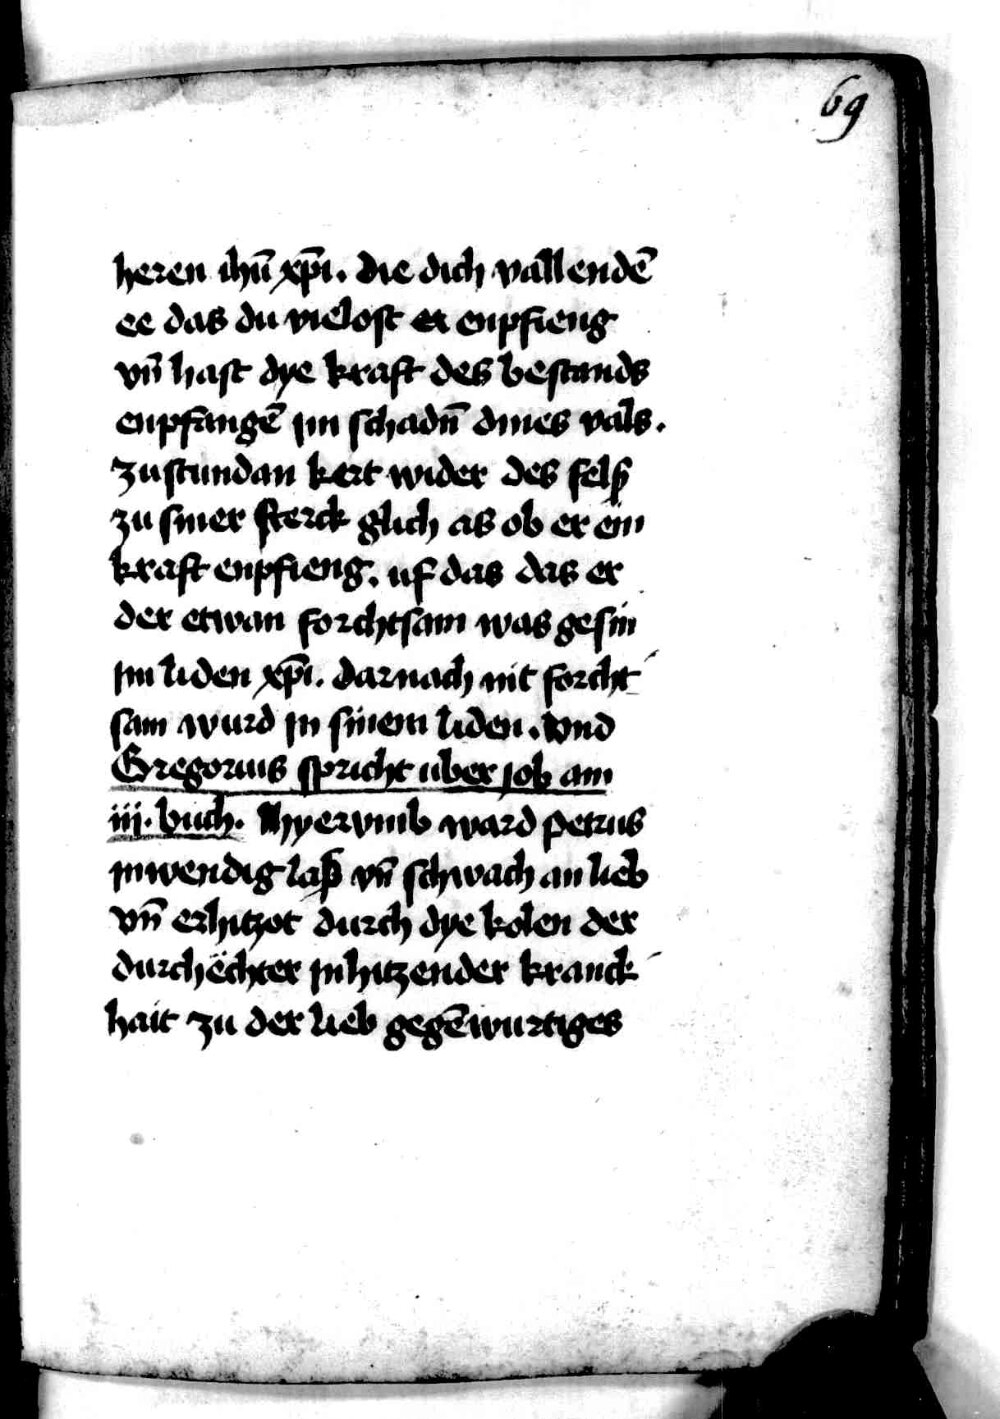 69
heren ihū xp̄i. die dich vallendē
ee das du vielost er enpfieng
vn̄ hast dye kraft des bestands
enpfangē jm schadn̄ dines vals.
zustundan kert wider des felß
zu siner sterck glich als ob er ein
kraft enpfieng. uf das das er
der etwan forchtsam was gesin
jm liden xp̄i. darnach nit forcht
sam wurd jn sinem liden. Vnd
Gregorius spricht uber job am
iij. buch. hyervmb ward petrus
jnwendig laß vn̄ schwach an lieb
vn̄ erhitzot durch dye kolen der
durchëchter jnhitzender kranck
hait zu der lieb gegēwurtiges